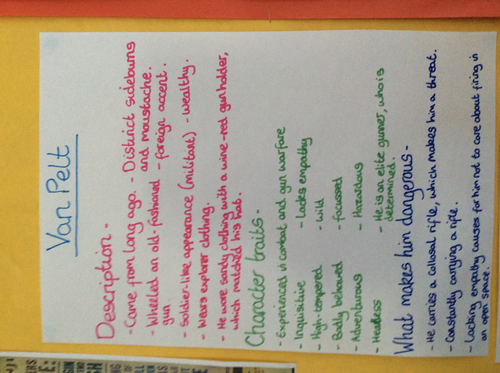 Van Pelt
Description -
- Came from long ago. - Distinct sideburns
and moustache.
- Wheeled an old fashioned - foreign accent.
gun.
- Soldier-like appearance (militant) - wealthy.
- Wears explorer clothing.
- He wore sandy clothing with a wine-red gun holder,
which matched his hat.
Character traits -
- Experienced in combat and gun warfare
- Inquisitive - Lacks empathy
- High-tempered - wild
- Badly behaved - Focussed
- Adventurous - Hazardous
- Headless - He is an elite gunner, who is
determined.
What makes him dangerous -
- He carries a collosal rifle, which makes him a threat.
- Constantly carrying a rifle.
- Lacking empathy causes for him not to care about firing in
an open space.